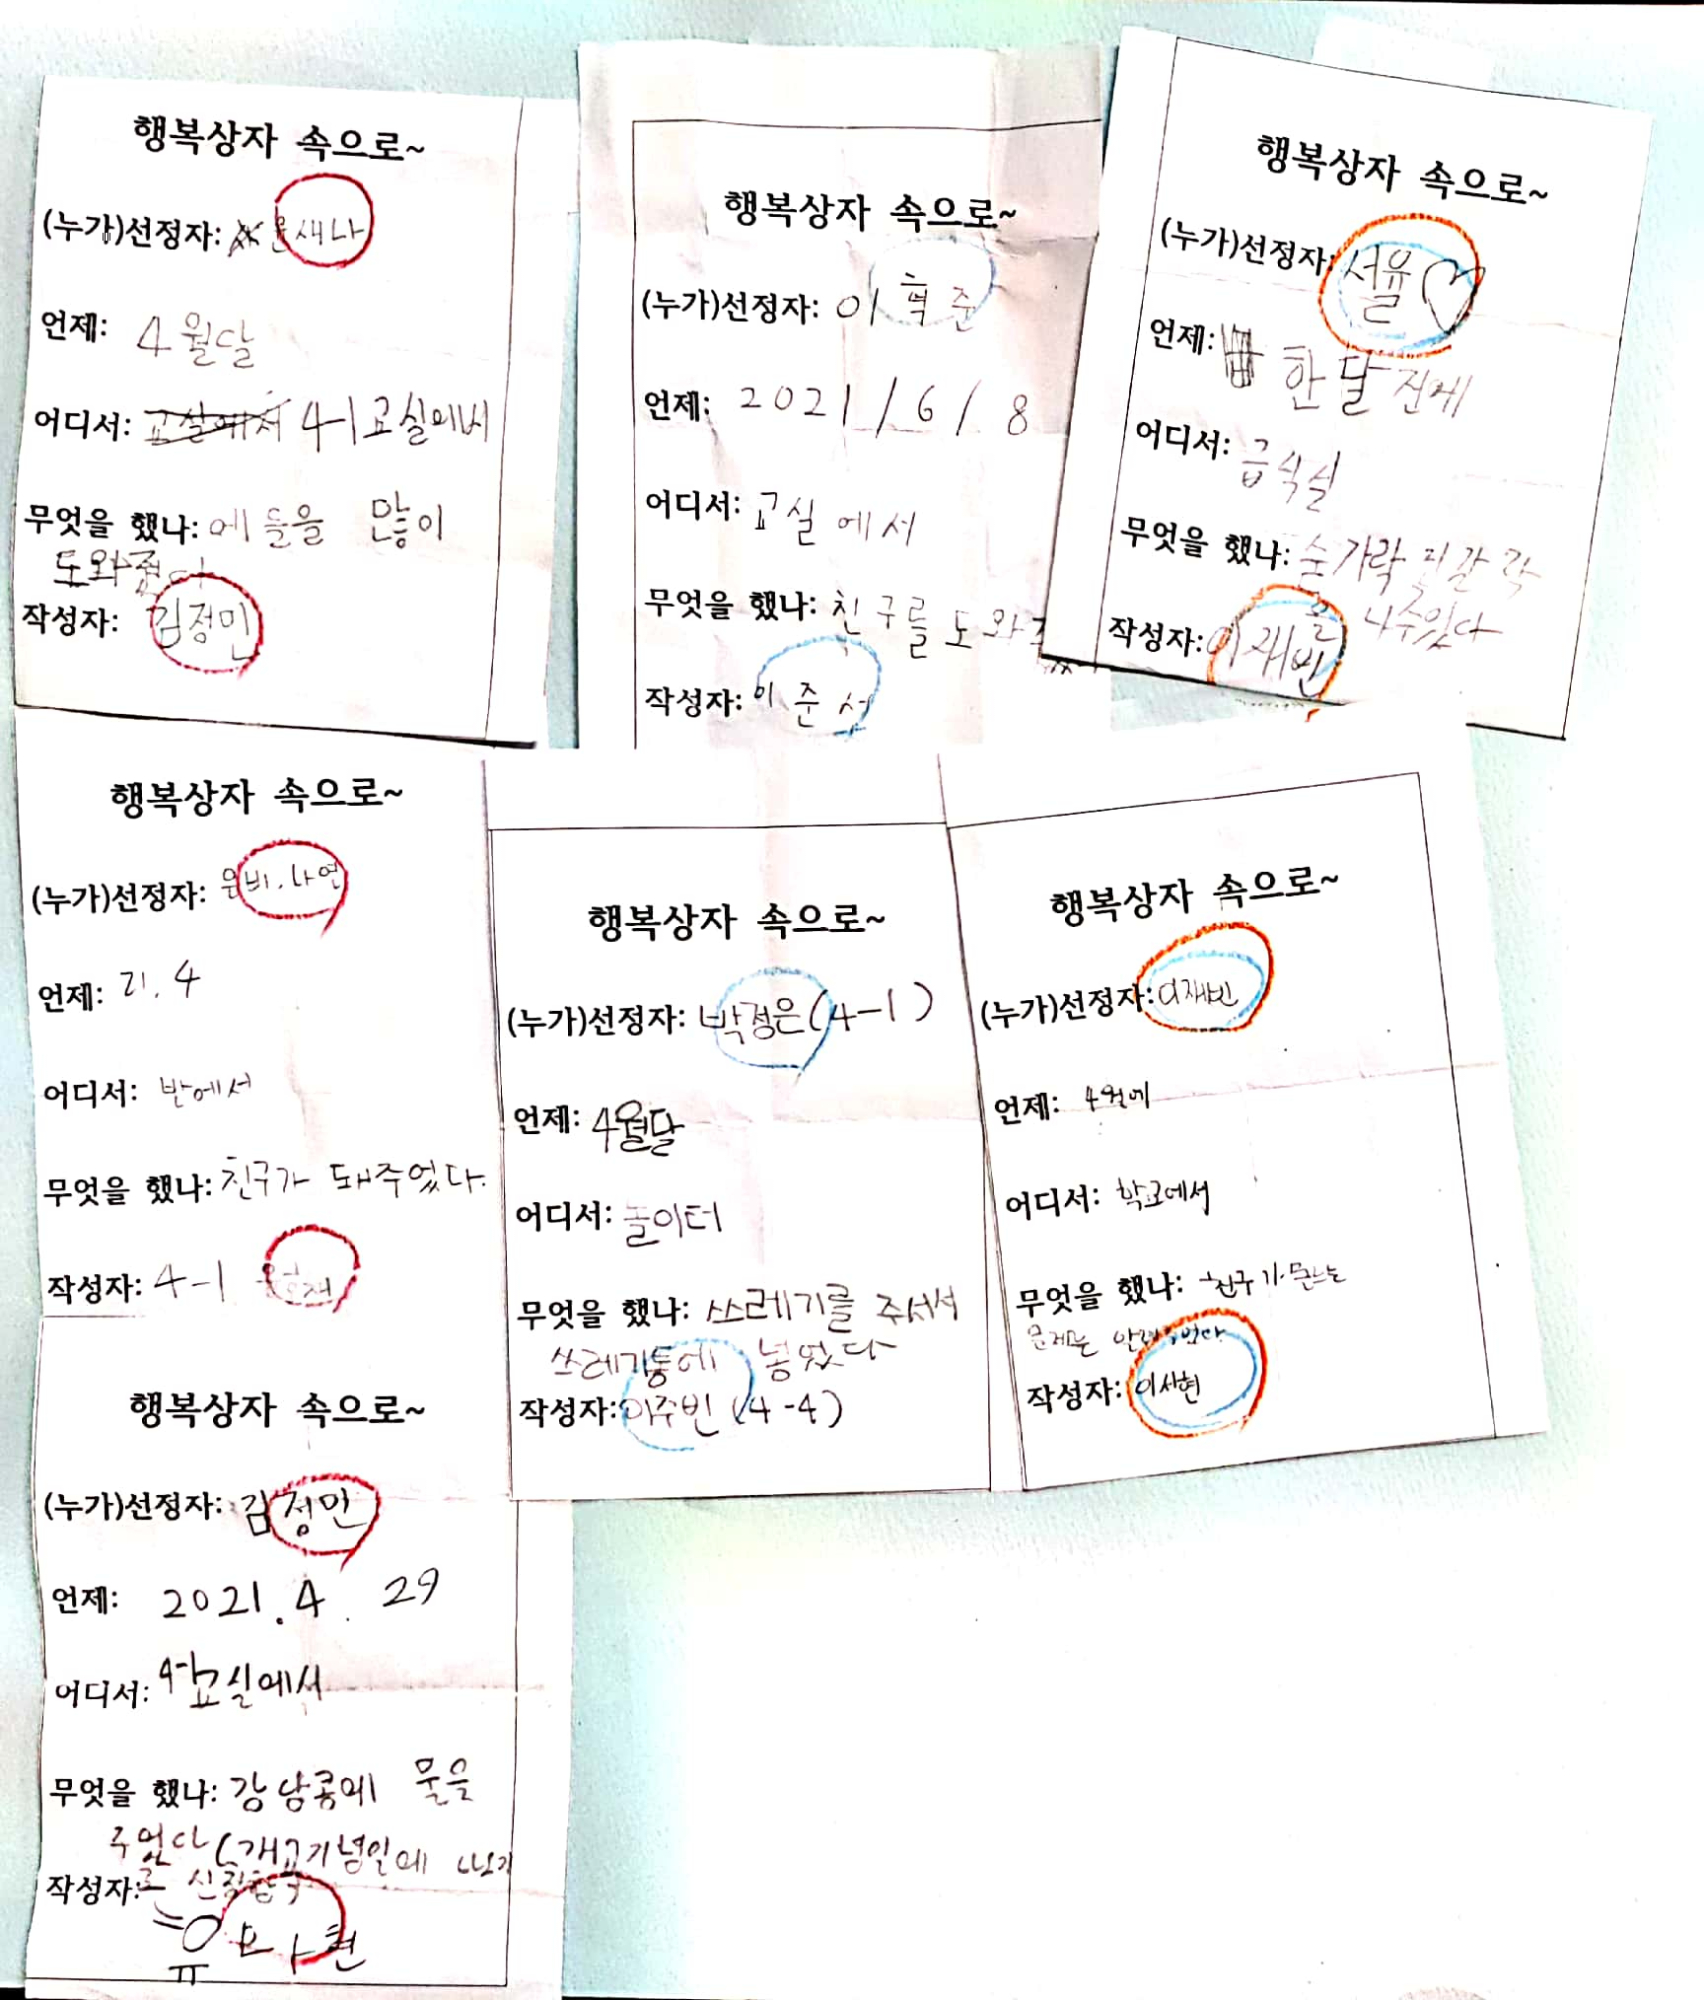 행복상자 속으로~
(누가)선정자: 새나
언제: 4월달
어디서: 교실에서 4-1교실에서
무엇을 했나: 에들을 많이
도와줬다
작성자: 김정민
행복상자 속으로~
(누가)선정자: 이혁준
언제: 2021/6/8
어디서: 교실에서
무엇을 했나: 친구를 도와
작성자: 이준서
행복상자 속으로~
(누가)선정자: 서율♡
언제: 한달전에
어디서: 급식실
무엇을 했나: 숟가락 젇갈락
을 나주었다
작성자: 이재빈
행복상자 속으로~
(누가)선정자: 은비, 나연
언제: 21. 4
어디서: 반에서
무엇을 했나: 친구가 돼주었다.
작성자: 4-1
행복상자 속으로~
(누가)선정자: 박정은(4-1)
언제: 4월달
어디서: 놀이터
무엇을 했나: 쓰레기를 주서서
쓰레기통에 넣었다
작성자: 이주빈(4-4)
행복상자 속으로~
(누가)선정자: 이재빈
언제: 4월에
어디서: 학교에서
무엇을 했나: 친구가 모르는
문제를 알려주었다.
작성자: 이서현
행복상자 속으로~
(누가)선정자: 김정민
언제: 2021. 4. 29
어디서: 4-1교실에서
무엇을 했나: 강낭콩에 물을
주었다(개교기념일에
작성자: